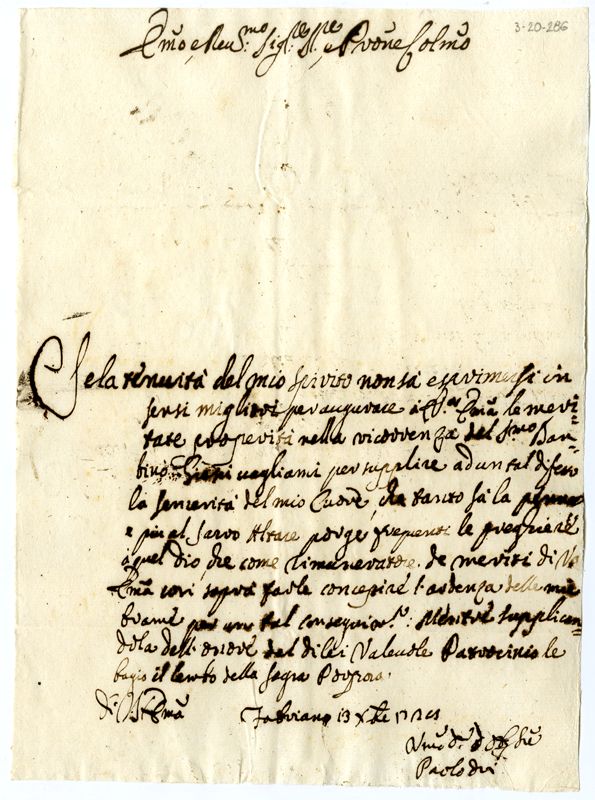 3-20-286
Emo e Reu.mo Sig.re Sig.re e Prone Colmo
Se la tenuità del mio spirito non sà esprimersi in
sensi migliori per augurare à V.ra Emã le meri=
tate prosperità nella ricorrenza del S.mo Bam=
bino, vagliami per supplire ad un tal difetto
la sincerità del mio Cuore, che tanto fà la penna
e piu al Sacro Altare porge frequenti le preghiere
à quel Dio, che come rimuneratore de meriti di V.
Emã così saprà farle concepire l'ardenza delle mie
brame per un tal Mentre supplican=
dola dell'onore del di lei Valeuole Patrocinio le
bagio il lembo della Sagra Porpora.
Di V. Emã Fabriano 13 Xbre
Paolo